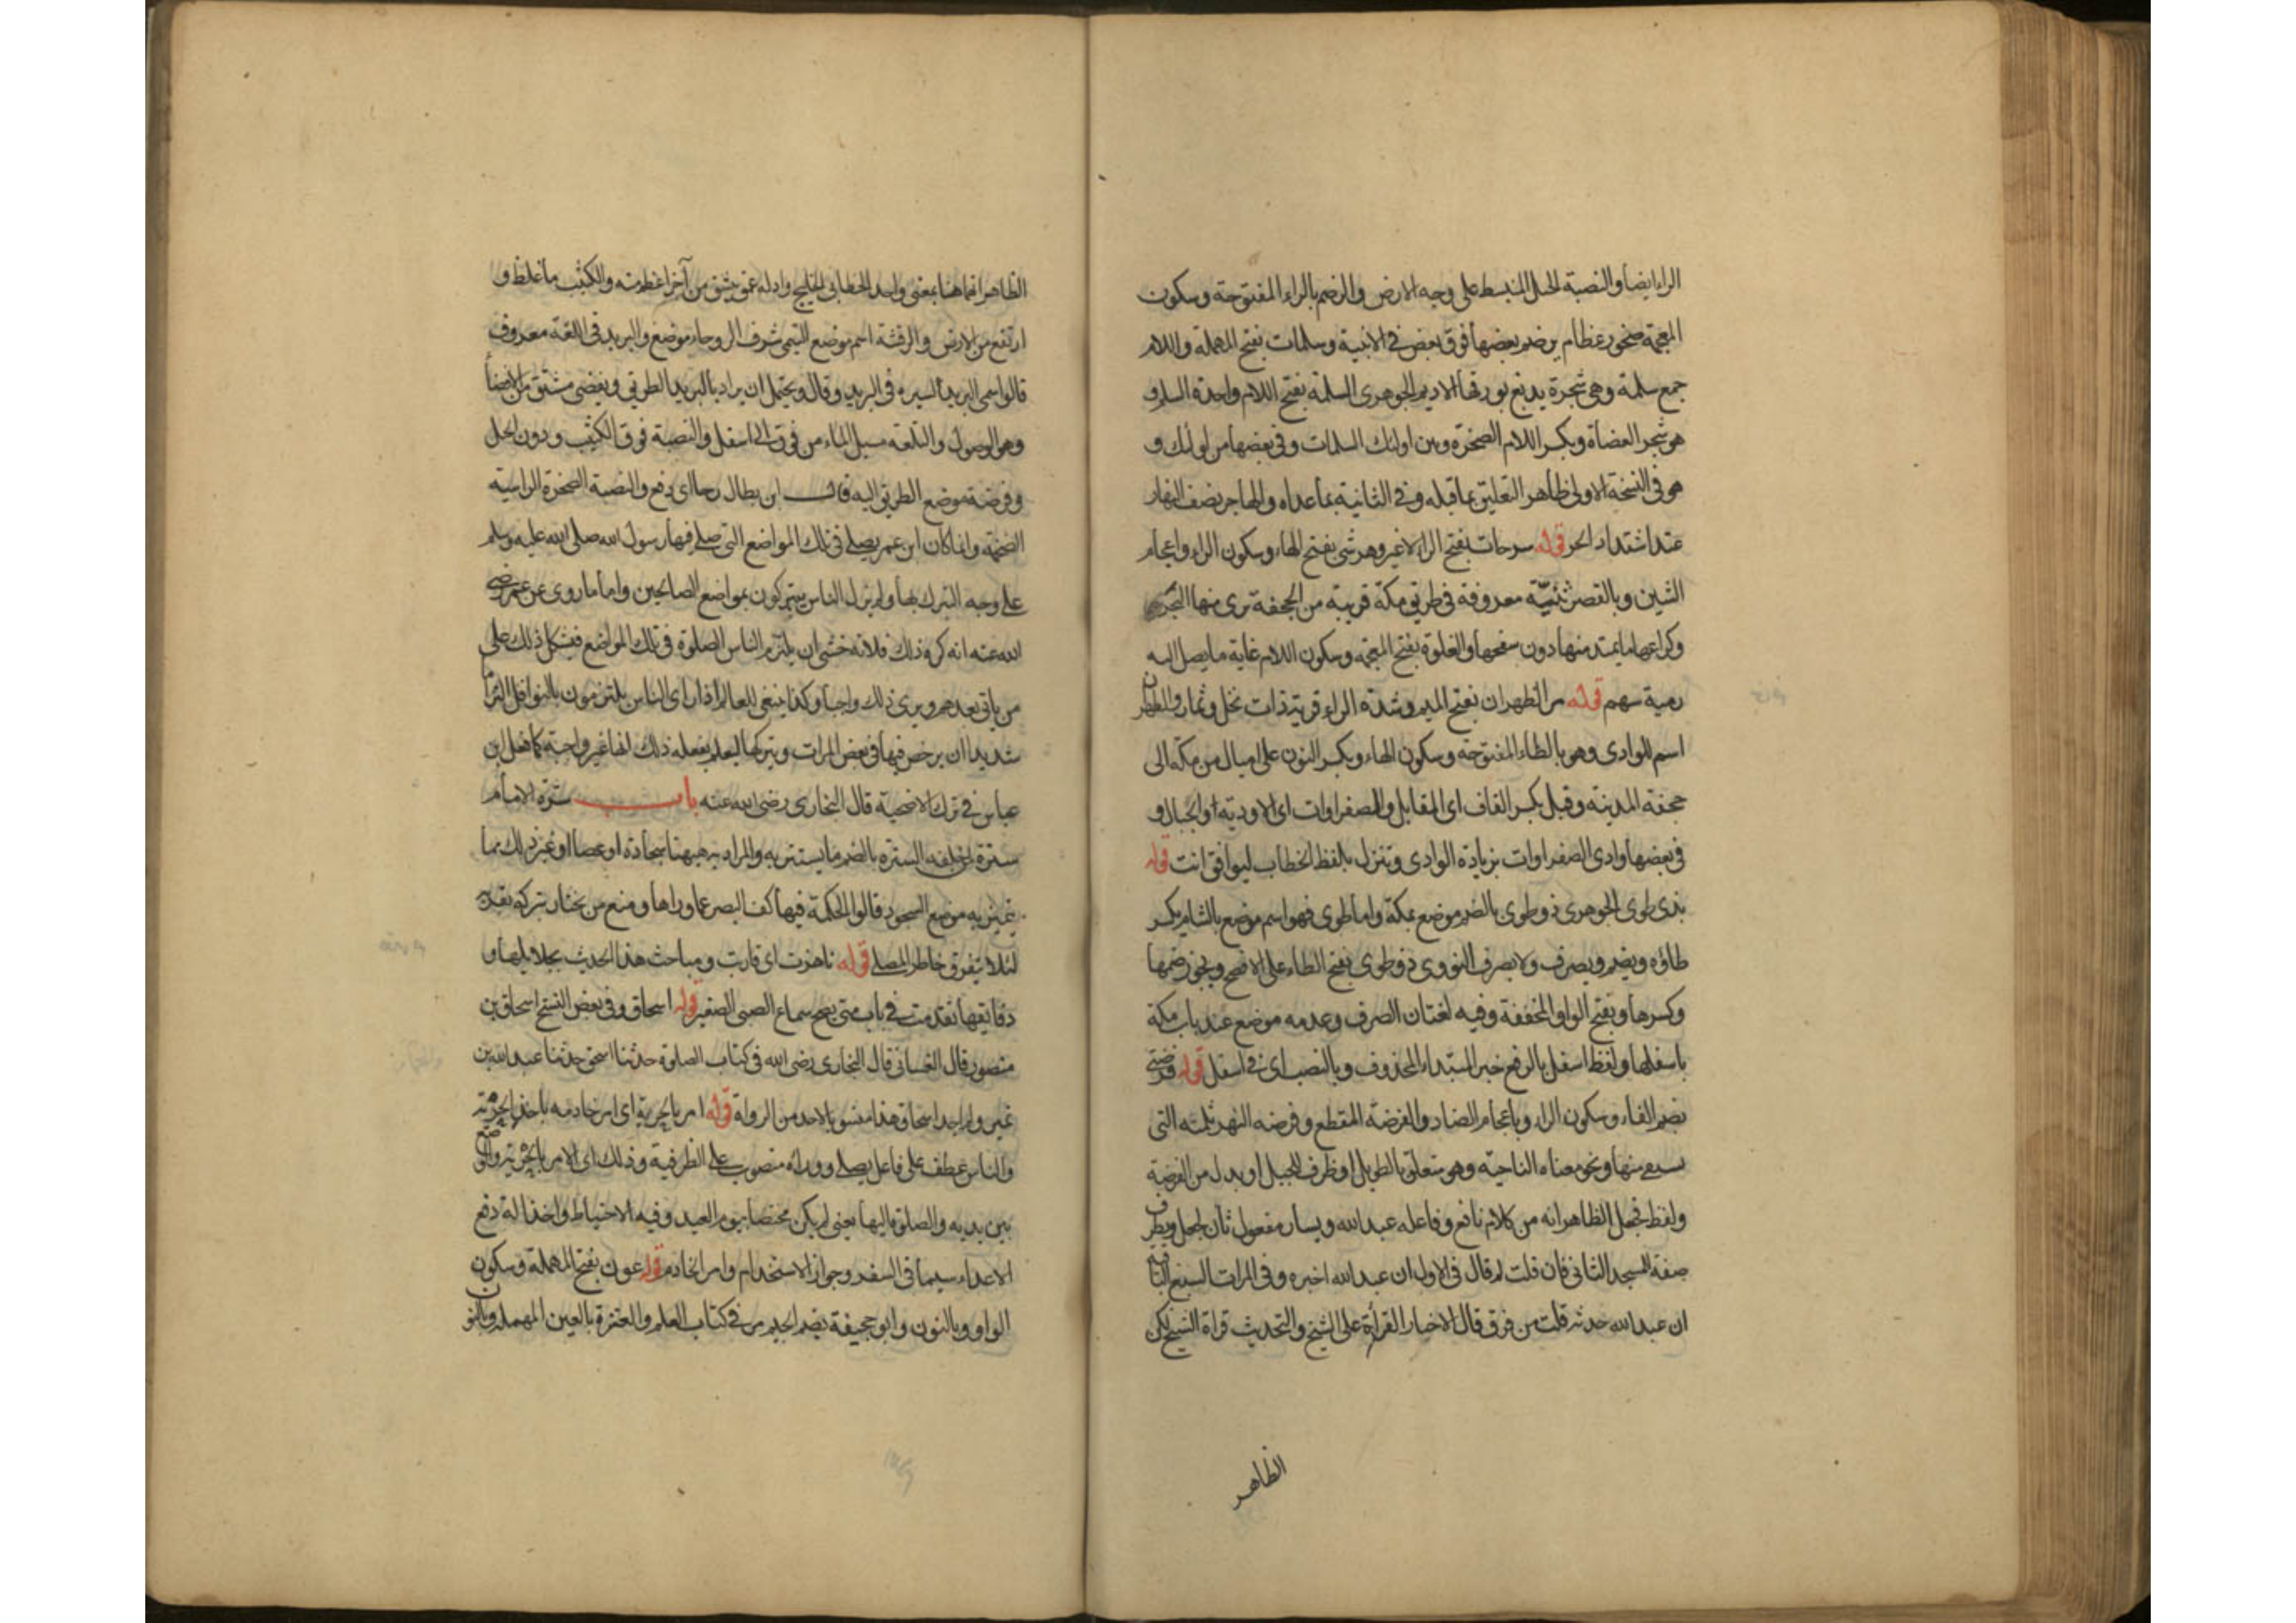 الراء ايضا والنصبة الجبل المنبسط على وجه الارض والرضم بالراء المفتوحة وسكون
المعجمة صخور عظام يرضم بعضها فوق بعض في الابنية وسلمات بفتح المهملة واللام
جمع سلمة وهي شجرة يدبغ بورقها الاديم الجوهرى السلمة بفتح اللام واحدة السلم و
هو شجر العضاة وبكسر اللام الصخرة وبين اولئك السلمات وفي بعضها من اولئك و
هو في النسخة الاولى ظاهر التعليق بما قبله وفي الثانية بما عداه والهاجر نصف النهار
عند اشتداد الحر قوله سرحات بفتح الراء لا غير وهرشى بفتح الهاء وسكون الراء واعجام
الشين وبالقصر ثنيّة معروفة في طريق مكة قريبة من الجحفة ترى منها البحر
وكراعها ما يمتد منها دون سفحها والغلوة بفتح المعجمة وسكون اللام غاية ما يصل اليه
رمية سهم قوله مر الظهران بفتح الميم وشدة الراء قرية ذات نخل وثمار والظهران
اسم للوادى وهو بالظاء المفتوحة وسكون الهاء وبكسر النون على اميال من مكة الى
جحفة المدينة وقبل بكسر القاف اى المقابل والصفراوات اى الاودية او الجبال و
في بعضها وادى الصفراوات بزيادة الوادى وتنزل بلفظ الخطاب ليوافق انت قوله
بذى طوى الجوهرى ذو طوى بالضم موضع بمكة واما طوى فهو اسم موضع بالشام بكسر
طاؤه ويضم ويصرف ولا يصرف النووى ذو طوى بفتح الطاء على الافصح ويجوز ضمها
وكسرها وبفتح الواو المخففة وفيه لغتان الصرف وعدمه موضع عند باب مكة
باسفلها ولفظ اسفل بالرفع خبر المبتداء المحذوف وبالنصب اى في اسفل قوله فرضتى
بضم الفاء وسكون الراء وباعجام الضاد والفرضة المقطع وفرضه النهر ثلمته التى
يستقى منها ونحو معناه الناحية وهو متعلق بالطويل او ظرف للجبل او بدل من الفرضة
ولفظ فجعل الظاهر انه من كلام نافع وفاعله عبد الله ويسار مفعول ثان لجعل وبطرف
صفة المسجد الثانى فان قلت لم قال في الاول ان عبد الله اخبره وفي المرات السبع الباقية
ان عبد الله حدثه قلت من فرق قال الاخبار القراءة على الشيخ والتحديث قراة الشيخ لكن
الظاهر
الظاهر انهما هنا بمعنى واحد الخطابى الخليج واد له عمق ينشق من آخر اعظم منه والكثيب ما غلظ و
ارتفع من الارض والرقشة اسم موضع التيمى شرف الروحاء موضع والبريد في اللغة معروف
قالوا سمى البريد لسيره في البريد وقال ويحتمل ان يراد بالبريد الطريق ويفضى مشتق من الافضا
وهو الوصول والتلعة مسيل الماء من فوق الى اسفل والنصبة فوق الكثيب ودون الجبل
وفرضة موضع الطريق اليه قال ابن بطال رحا اى دفع والنصبة الصخرة الراسية
الضخمة وانما كان ابن عمر يصلى في تلك المواضع التى صلى فيها رسول الله صلى الله عليه وسلم
على وجه التبرك بها ولم يزل الناس يتبركون بمواضع الصالحين واما ما روى عن عمر رضى
الله عنه انه كره ذلك فلانه خشى ان يلتزم الناس الصلوة في تلك المواضع فيشكل ذلك على
من ياتى بعدهم ويرى ذلك واجبا وكذا ينبغى للعالم اذا راى الناس يلتزمون بالنوافل التزاما
شديدا ان يرخص فيها في بعض المرات ويتركها ليعلم بفعله ذلك انها غير واجبة كما فعل ابن
عباس في ترك الاضحية قال البخارى رضى الله عنه باب سترة الامام
سترة لمن خلفه السترة بالضم ما يستتر به والمراد به ههنا سجادة او عصا او غير ذلك مما
يتميز به موضع السجود قالوا الحكمة فيها كف البصر عما وراها ومنع من يجتاز
لئلا يتفرق خاطر المصلى قوله ناهزت اى قاربت ومباحث هذا الحديث بجلايلها و
دقايقها تقدمت في باب متى يصح سماع الصبى الصغير قوله اسحاق وفي بعض النسخ اسحاق بن
منصور قال الغسانى قال البخارى رضى الله في كتاب الصلوة حدثنا اسحق حدثنا عبد الله بن
نمير ولم اجد اسحاق هذا منسوبا لاحد من الرواة قوله امر بالحربة اى امر خادمه باخذ الحربة
والناس عطف على فاعل يصلى ووراءه منصوب على الظرفية وذلك اى الامر بالحربة والوضع
بين يديه والصلوة اليها يعنى لم يكن مختصا بيوم العيد وفيه الاحتياط واخذ الة دفع
الاعداء سيما في السفر وجواز الاستخدام وامر الخادم قوله عون بفتح المهملة وسكون
الواو وبالنون وابو جحيفة بضم الجيم مر في كتاب العلم والعنزة بالعين المهملة وبالنون